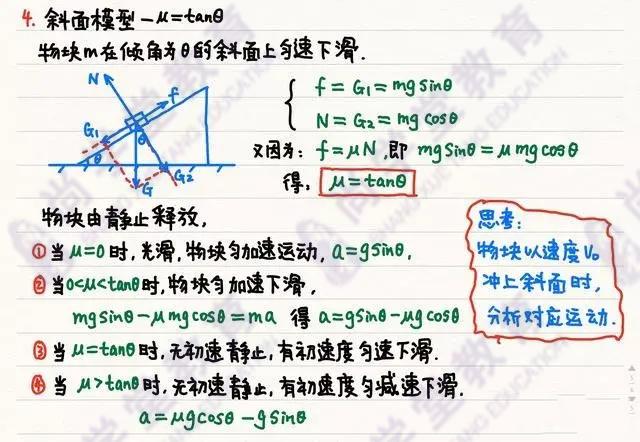 4. 斜面模型-μ=tanθ
物块m在倾角为θ的斜面上匀速下滑.
N
f
G₁
θ
θ
G
G₂
f=G₁=mgsinθ
N=G₂=mgcosθ
又因为: f=μN,即 mgsinθ=μmgcosθ
得: μ=tanθ
物块由静止释放,
①当μ=0时,光滑,物块匀加速运动, a=gsinθ.
②当0<μ<tanθ时,物块匀加速下滑,
mgsinθ-μmgcosθ=ma 得 a=gsinθ-μgcosθ
③当μ=tanθ时,无初速静止,有初速度匀速下滑.
④当μ>tanθ时,无初速静止,有初速度匀减速下滑.
a=μgcosθ-gsinθ
思考:
物块以速度V₀
冲上斜面时,
分析对应运动.